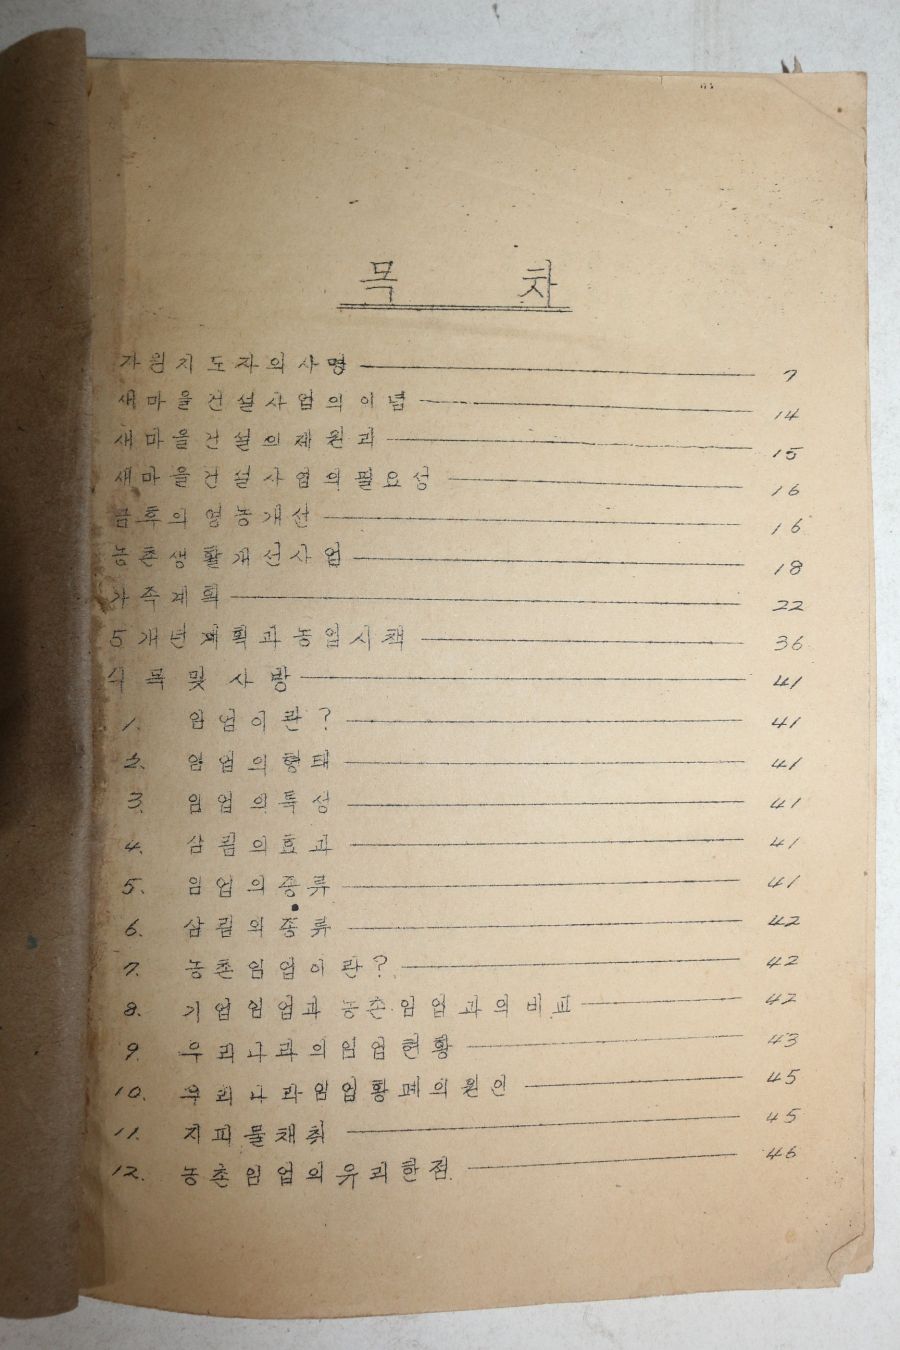 목 차
자원지도자의 사명 7
새마을 건설사업의 이념 14
새마을 건설의 제원과 15
새마을 건설사업의 필요성 16
금후의 영농개선 16
농촌생활개선사업 18
가족계획 22
5개년계획과 농업시책 36
식목 및 사방 41
1. 임업이란? 41
2. 임업의 형태 41
3. 임업의 특성 41
4. 삼림의 효과 41
5. 임업의 종류 41
6. 삼림의 종류 42
7. 농촌임업이란? 42
8. 기업임업과 농촌임업과의 비교 42
9. 우리나라의 임업현황 43
10. 우리나라 임업황폐의 원인 45
11. 지피물채취 45
12. 농촌임업의 유리한점 46